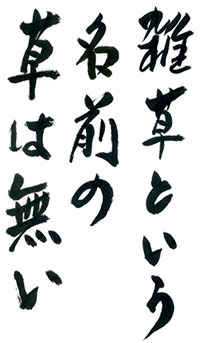 雑草という
名前の
草は無い